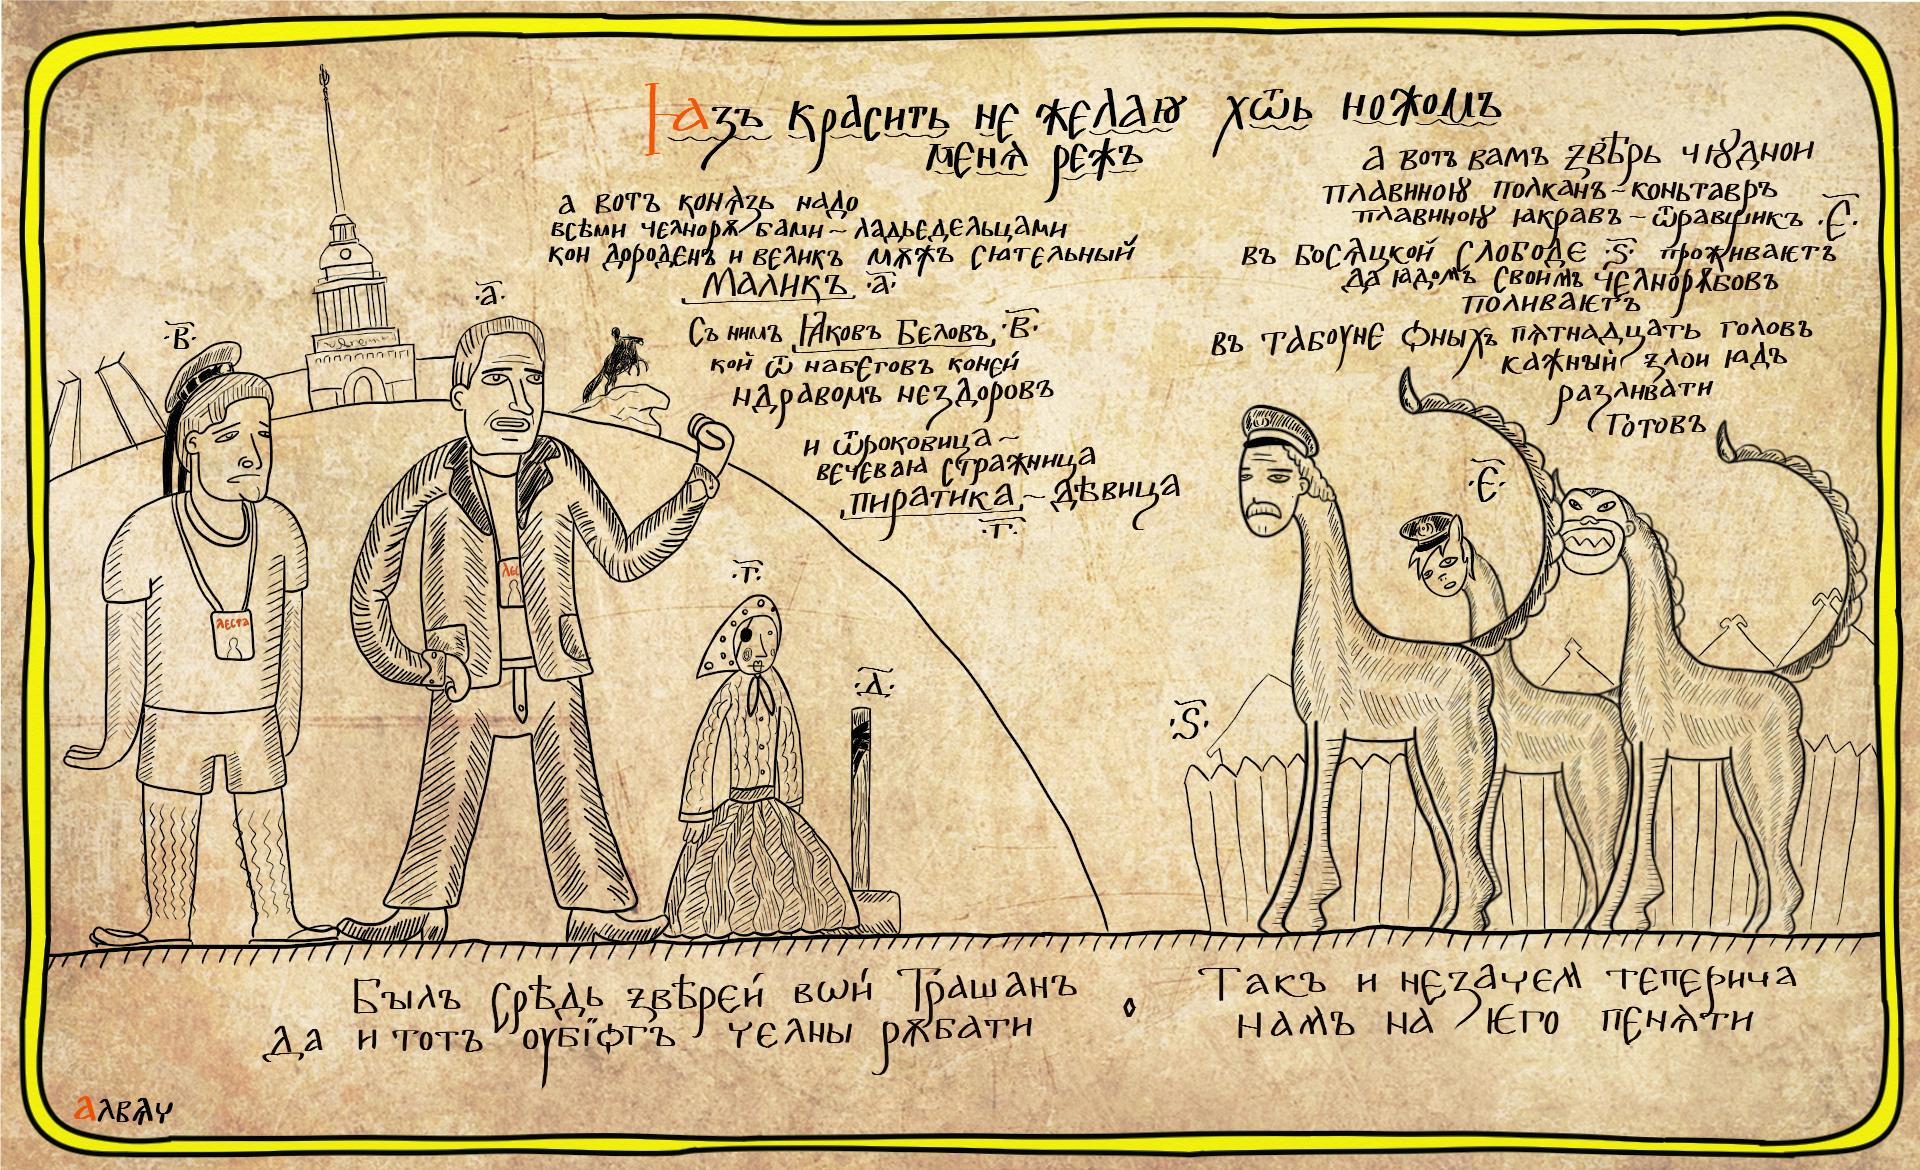 Ꙗзъ красить не желаю хѿь ножомъ
меня режъ
а вотъ конѧзь надо
всѣми челнорѫбами~ладьедельцами
кои дороденъ и великъ мѫжъ сıательный
Маликъ ·а҃·
Съ нимъ Ꙗковъ Беловъ, ·в҃·
кой ѿ набегов коней
ндравомъ нездоровъ
и ѿроковица~
вечеваꙗ стражница
пиратика~дѣвица
·г҃·
а вотъ вамъ ꙁвѣрь чꙋднои
главиною полканъ~коньтавръ
главиною ꙗкравъ~ѿравщикъ ·є҃·
въ босѧцкой слободе ·ѕ҃· проживаѥтъ
да ꙗдомъ своимъ челнорѫбовъ
поливаѥтъ
въ табоуне ѻныхъ пѧтнадцать головъ
кажный ꙁлои ꙗдъ
разливати
готовъ
·в҃·
·а҃·
·г҃·
·д҃·
·є҃·
·ѕ҃·
леста
Былъ срѣдь ꙁвѣрей вѡй Трашанъ
да и тотъ оубїѻгъ челны рѫбати
Такъ и незачем теперича
намъ на ѥго пенѧти
алвѧч